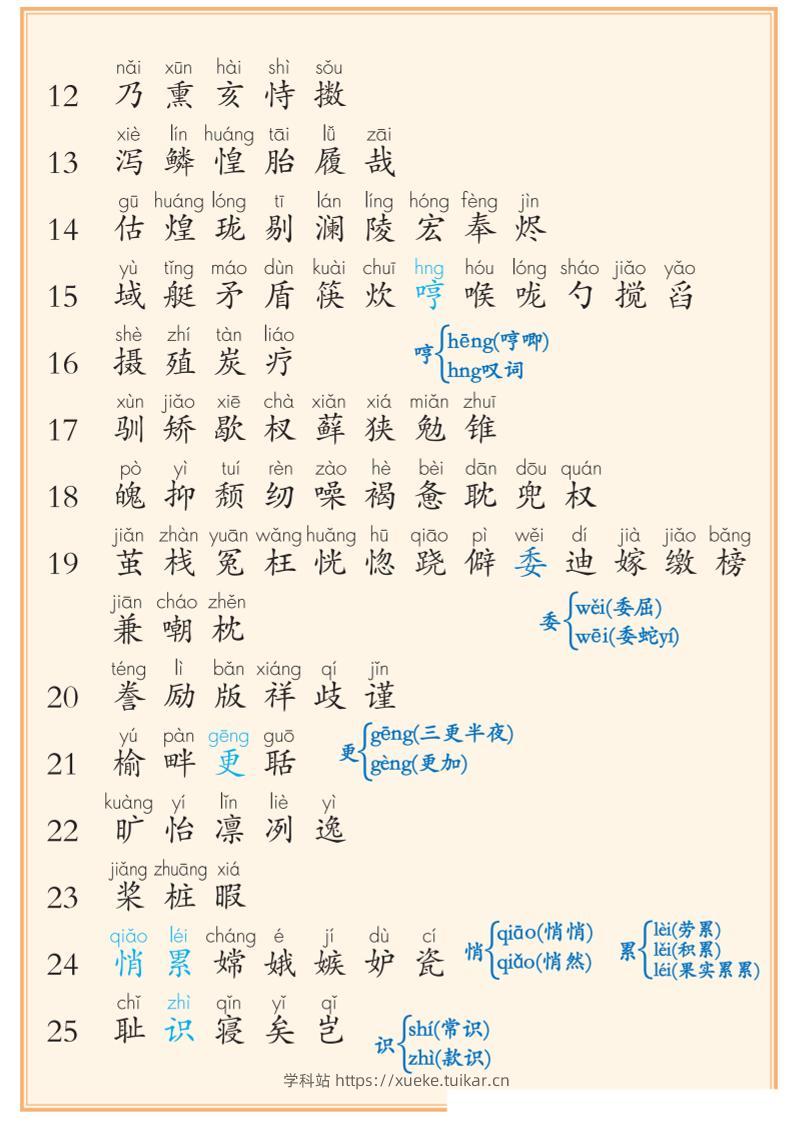 nǎi xūn hài shì sǒu
12 乃 熏 亥 恃 擞
xiè lín huáng tāi lǚ zāi
13 泻 鳞 惶 胎 履 哉
gū huáng lóng tī lán líng hóng fèng jìn
14 估 煌 珑 剔 澜 陵 宏 奉 烬
yù tǐng máo dùn kuài chuī hng hóu lóng sháo jiǎo yǎo
15 域 艇 矛 盾 筷 炊 哼 喉 咙 勺 搅 舀
shè zhí tàn liáo
16 摄 殖 炭 疗
哼 hēng(哼唧)
hng叹词
xùn jiǎo xiē chà xiǎn xiá miǎn zhuī
17 驯 矫 歇 杈 藓 狭 勉 锥
pò yì tuí rèn zào hè bèi dān dōu quán
18 魄 抑 颓 纫 噪 褐 惫 耽 兜 权
jiǎn zhàn yuān wǎng huǎng hū qiāo pì wěi dí jià jiǎo bǎng
19 茧 栈 冤 枉 恍 惚 跷 僻 委 迪 嫁 缴 榜
jiān cháo zhěn
兼 嘲 枕
委 wěi(委屈)
wēi(委蛇yí)
téng lì bǎn xiáng qí jǐn
20 誊 励 版 祥 歧 谨
yú pàn gēng guō
21 榆 畔 更 聒
更 gēng(三更半夜)
gèng(更加)
kuàng yí lǐn liè yì
22 旷 怡 凛 冽 逸
jiǎng zhuāng xiá
23 桨 桩 暇
qiǎo léi cháng é jí dù cí
24 悄 累 嫦 娥 嫉 妒 瓷
悄 qiāo(悄悄)
qiǎo(悄然)
累 lèi(劳累)
lěi(积累)
léi(果实累累)
chǐ zhì qǐn yǐ qǐ
25 耻 识 寝 矣 岂
识 shí(常识)
zhì(款识)
学科站 https://xueke.tuikar.cn